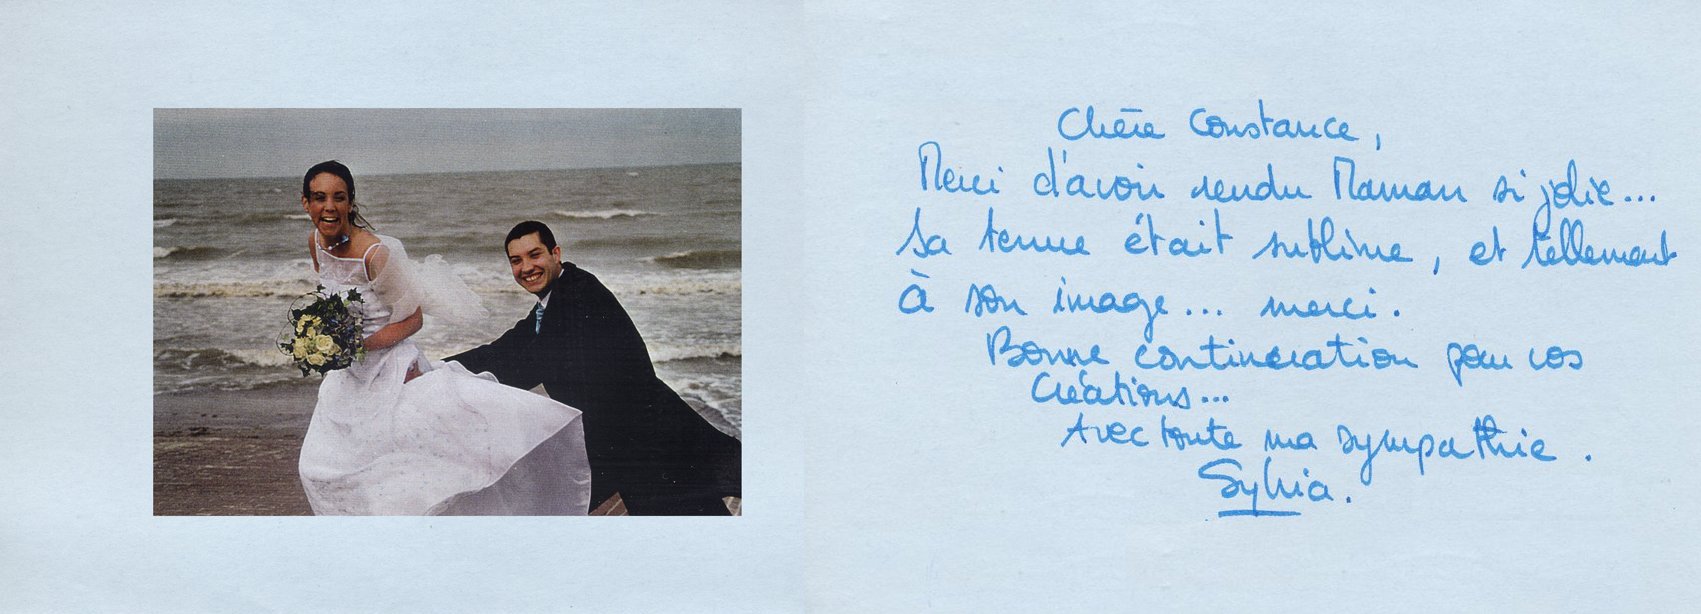 Chère Constance,
Merci d'avoir rendu Maman si jolie...
Sa tenue était sublime, et tellement
à son image... merci.
Bonne continuation pour vos
Créations...
Avec toute ma sympathie.
Sylvia.